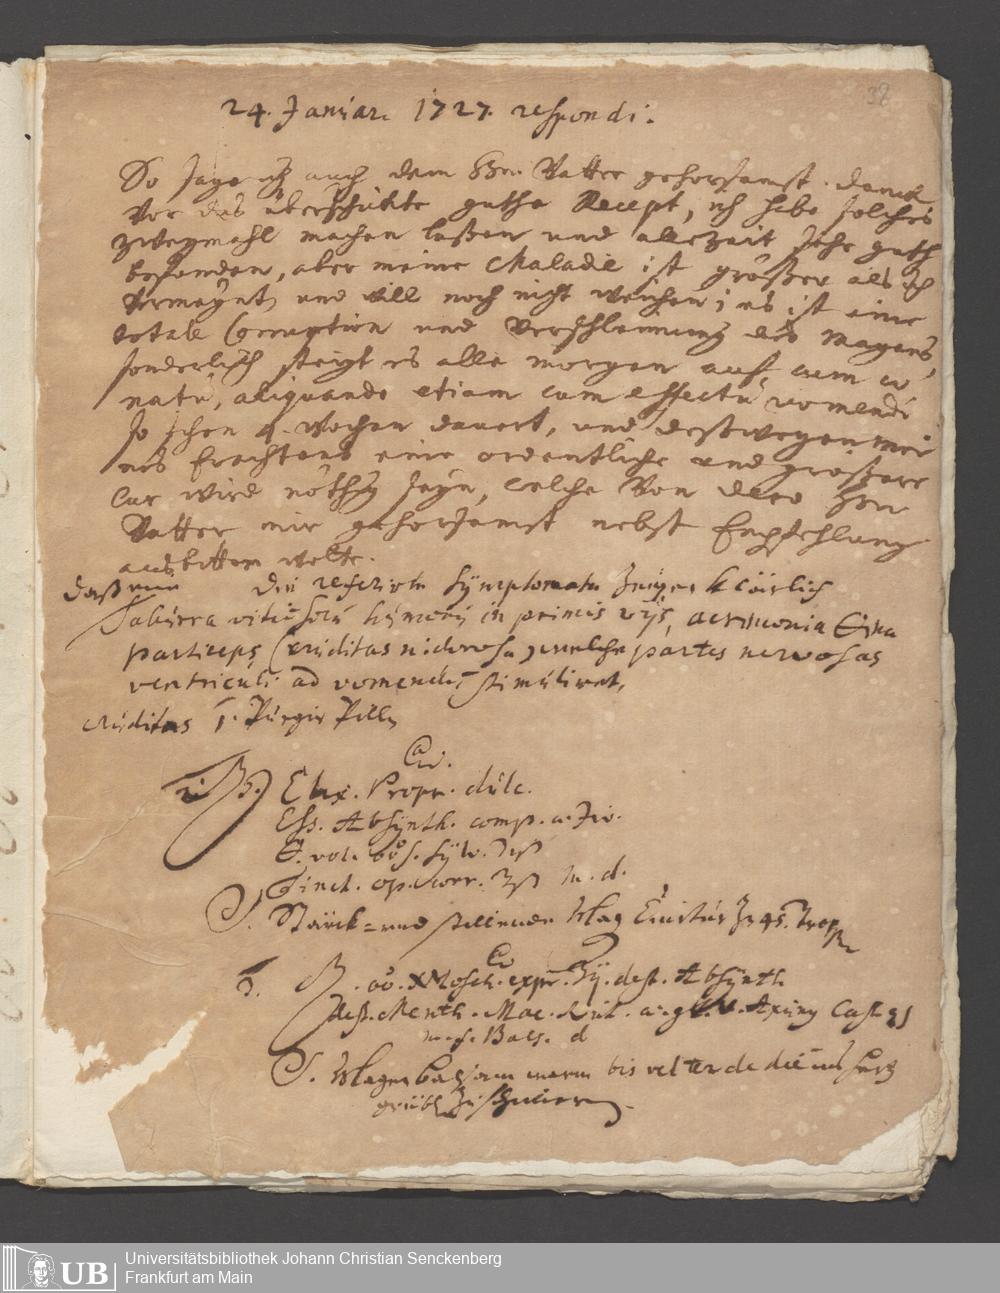 38
24. Januar. 1727. respondi.
So sage ich auch dem Hrn. Vatter gehorsamst danck
vor das überschickte guthe Recept, ich habe solches
zweymahl machen laßen und allezeit sehr guth
befunden, aber meine Maladie ist größer als ich
vermeynt, und will noch nicht weichen; es ist eine
totale Corruption und Verschleimung des Magens,
sonderlich steigt es alle morgen auf, cum co
natu, aliquando etiam cum effectu vomendi
so schon 4. Wochen dauert, und deßwegen mei
nes Erachtens eine ordentliche und größere
Cur wird nöthig seyn, welche von dero Hrn
Vatter mir gehorsamst nebst Empfehlung
ausbitten wolte.
daß die symptomata zeigen klärlich
Saburra vitiosorum humorum in primis viis, acrimonia
particeps Cruditas nidorosa, welche partes nervosas
ventriculi ad vomendum stimuliret,
cruditas 1. Purgir Pilln
2. Rp. Elix. Propr. dulc.
Ess. Absynth. comp. a.
vol. sylv.
Tinct. m. d.
S. Stärck- und stillende Mag Zu 45. Tropf
3. Rp. Mosch. expr. dest. Absynth
dest. Menth. Mac.
m. f. Bals. d
S. Magen balsam warm bis die Hertz
grüb Zu schmieren
Universitätsbibliothek Johann Christian Senckenberg
Frankfurt am Main
UB